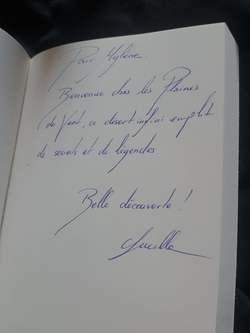 Pour Mylène
Bienvenue dans les Plaines
de Vent, ce désert infini emplit
de secrets et de légendes.
Belle découverte !